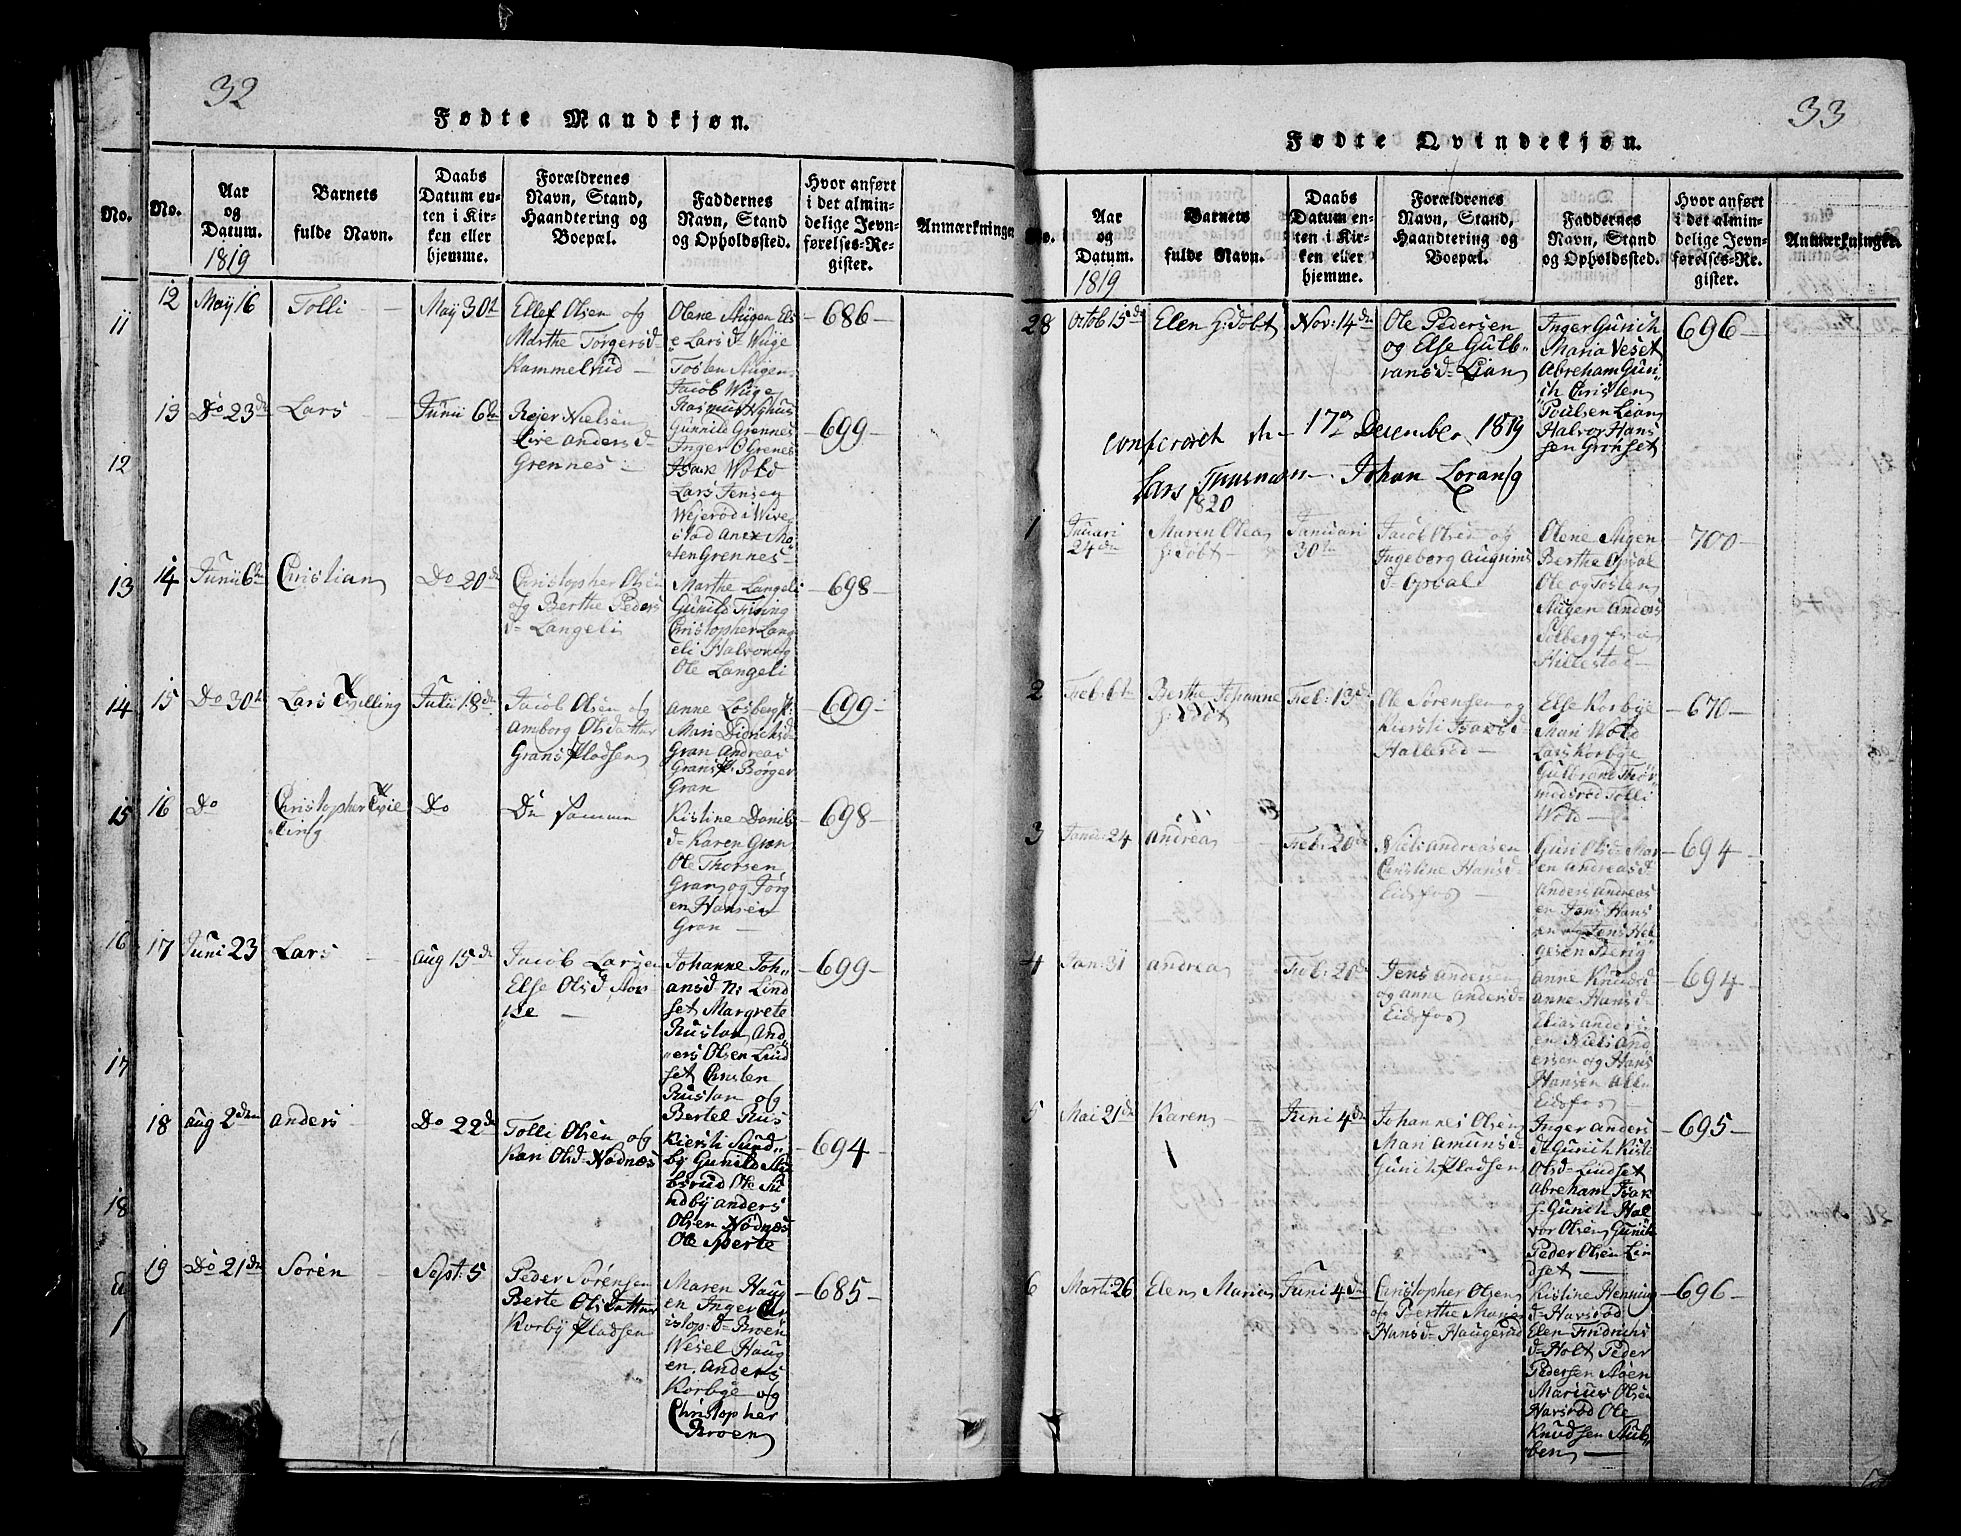 32
Fødte Mandkjøn.
No.
No.
Aar
og
Datum.
1819
Barnets
fulde Navn.
Daabs
Datum en-
ten i Kir-
ken eller
hjemme.
Forældrenes
Navn, Stand,
Haandtering og
Boepæl.
Faddernes
Navn, Stand
og Opholdssted.
Hvor anført
i det almin-
delige Jevn-
førelses-Re-
gister.
Anmærkninger
11
12
13
14
15
16
17
18
12
May 16
Tolli
May 30te
Ellef Olsen og
Marthe Torgersd-
Kammelrud
Olene Augen Els
e Lars d Wüge
Tosten Augen
Jacob Wüge
686
13
Do 23de
Lars
Junii 6te
Rejer Nielsen
Live Andersd-
Grennes
Rasmus Nyhus
Gunild Grennes
Inger O Grenes
Isaak Wold
Lars Jensen
Wejerød i Wive
stad Anex
ten Grennes
699
14
Junii 6te
Christian
Do 20de
Christopher Olsen
og Berthe Peders
d- Langeli
Marthe Langeli
Gunild
Christopher Lang
eli Halvor og
Ole Langeli
698
15
Do 30te
Lars Tvilling
Julii 18de
Jacob Olsen og
Amborg Olsdatter
Grans Pladsen
Anne Løsberg
Mari Didrichsd
Gran Andreas
Grans Pl. Børger
Gran
699
16
Do
Christopher Tvil
ling
Do
De samme
Kistine Daniels
d- Karen Gran
Ole Thorsen
Gran og Jørg
en Hansen
Gran
698
17
Juni 23
Lars
Aug 15de
Jacob Larsen
Else Olsd
Johanne Joh
ansd- N: Lind
set Margrete
Rustan And
ers Olsen Lind
set Christen
Rustan og
Bertel Rus
699
18
Aug 2den
Anders
Do 22de
Tolli Olsen og
Kari Olsd- Nodnæs
Kiersti Sund
by Gunild
bsrud Ole Su
ndby Anders
Olsen Nodnæs
Ole Sperte
694
19
Do 21de
Søren
Sept: 5
Peder Sørensen
Berte Olsdatter
Korby Pladsen
Maren Haug
en Inger Chr
istop: d- Broen
Wesel Haug
en Anders
Korbye og
Christopher
Broen
685
33
Fødte Qvindekjøn.
No.
Aar
og
Datum.
1819
Barnets
fulde Navn.
Daabs
Datum en-
ten i Kir-
ken eller
hjemme.
Forældrenes
Navn, Stand,
Haandtering og
Boepæl.
Faddernes
Navn, Stand
og Opholdssted.
Hvor anført
i det almin-
delige Jevn-
førelses-Re-
gister.
Anmærkninger.
28
Octob 15de
Elen h: døbt
Nov: 14de
Ole Pedersen
og Else Gulb-
ransd- Lian
Inger Gurich
Maria Veset
Abreham Guri
ch Christen
Poulsen Lian
Halvor Hans
sen Grønset
696
confereret den 17de Desember 1819
Lars Johan
1820
1
Januari
24de
Maren Olea
h: døbt
Januari
30te
Jacob Olsen og
Ingeborg
d- Opsal
Olene Augen
Berthe Opsal
Ole og Tosten
Augen Anders
Solberg fra
Hillestad
700
2
Feb: 6te
Berthe Johanne
h: døbt
Feb: 13de
Ole Sørensen og
Kiersti Isaksd
Hallerød
Else Korbye
Mari Wold
Lars Korbye
Gulbrand Thor
mødsrød Tolli
Wold
670
3
Janu: 24
Andrea
Feb: 20de
Niels Andreasen
Christine Hansd-
Eidsfos
Guri Olsd- Mar
en Andreasd-
Anders Andreas
en Jens Hans
en og Jens Hel
gesen Berig
694
4
Jan: 31
Andrea
Feb: 20de
Jens Andersen
og Anne Andersd-
Eidsfos
Anne Knudsd
Anne Hansd-
Elias Anders
en Niels And
ersen og Hans
Hansen Alle
Eidsfos
694
5
Mai 21de
Karen
Juni 4de
Johannes Olsen
Mari Amunsd-
Gurich Pladsen
Inger Anders
d- Gurich Kisti
Olsd- Lindset
Abreham Isak
s- Gurich Hal
vor Olsen Gurich
Peder Olsen Lin
dset
695
6
Marti: 26
Elen Maria
Juni 4de
Christopher Olsen
og Berthe Maria
Hansd- Haugerud
Kistine Henning
d- Havsrød
Elen Fridrichs
d- Holt Peder
Pedersen Moen
Marius Olsen
Havsrød Ole
Knudsen
ben
696